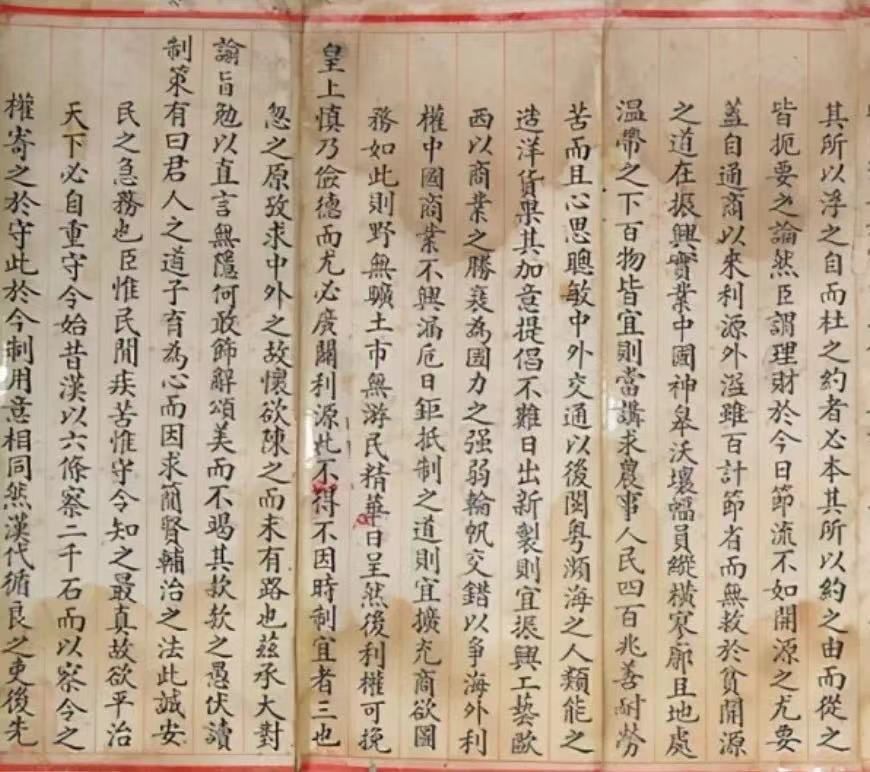 其所以浮之自而杜之約者必本其所以約之由而從之
皆扼要之論然臣謂理財於今日節流不如開源之尤要
蓋自通商以來利源外溢雖百計節省而無救於貧開源
之道在振興實業中國神皋沃壤幅員縱橫寥廓且地處
温帶之下百物皆宜則當講求農事人民四百兆善耐勞
苦而且心思聰敏中外交通以後閩粵瀕海之人類能之
造洋貨果其加意提倡不難日出新製則宜振興工藝歐
西以商業之勝衰為國力之强弱輪帆交錯以爭海外利
權中國商業不興漏卮日鉅抵制之道則宜擴充商欲圖
務如此則野無曠土市無游民精華日呈然後利權可挽
皇上慎乃儉德而尤必廣闢利源此不得不因時制宜者三也
忽之原攷求中外之故懷欲陳之而未有路也茲承大對
諭旨勉以直言無隱何敢飾辭頌美而不竭其款款之愚伏讀
制策有曰君人之道子育為心而因求簡賢輔治之法此誠安
民之急務也臣惟民間疾苦惟守令知之最真故欲平治
天下必自重守令始昔漢以六條察二千石而以察令之
權寄之於守此於今制用意相同然漢代循良之吏後先